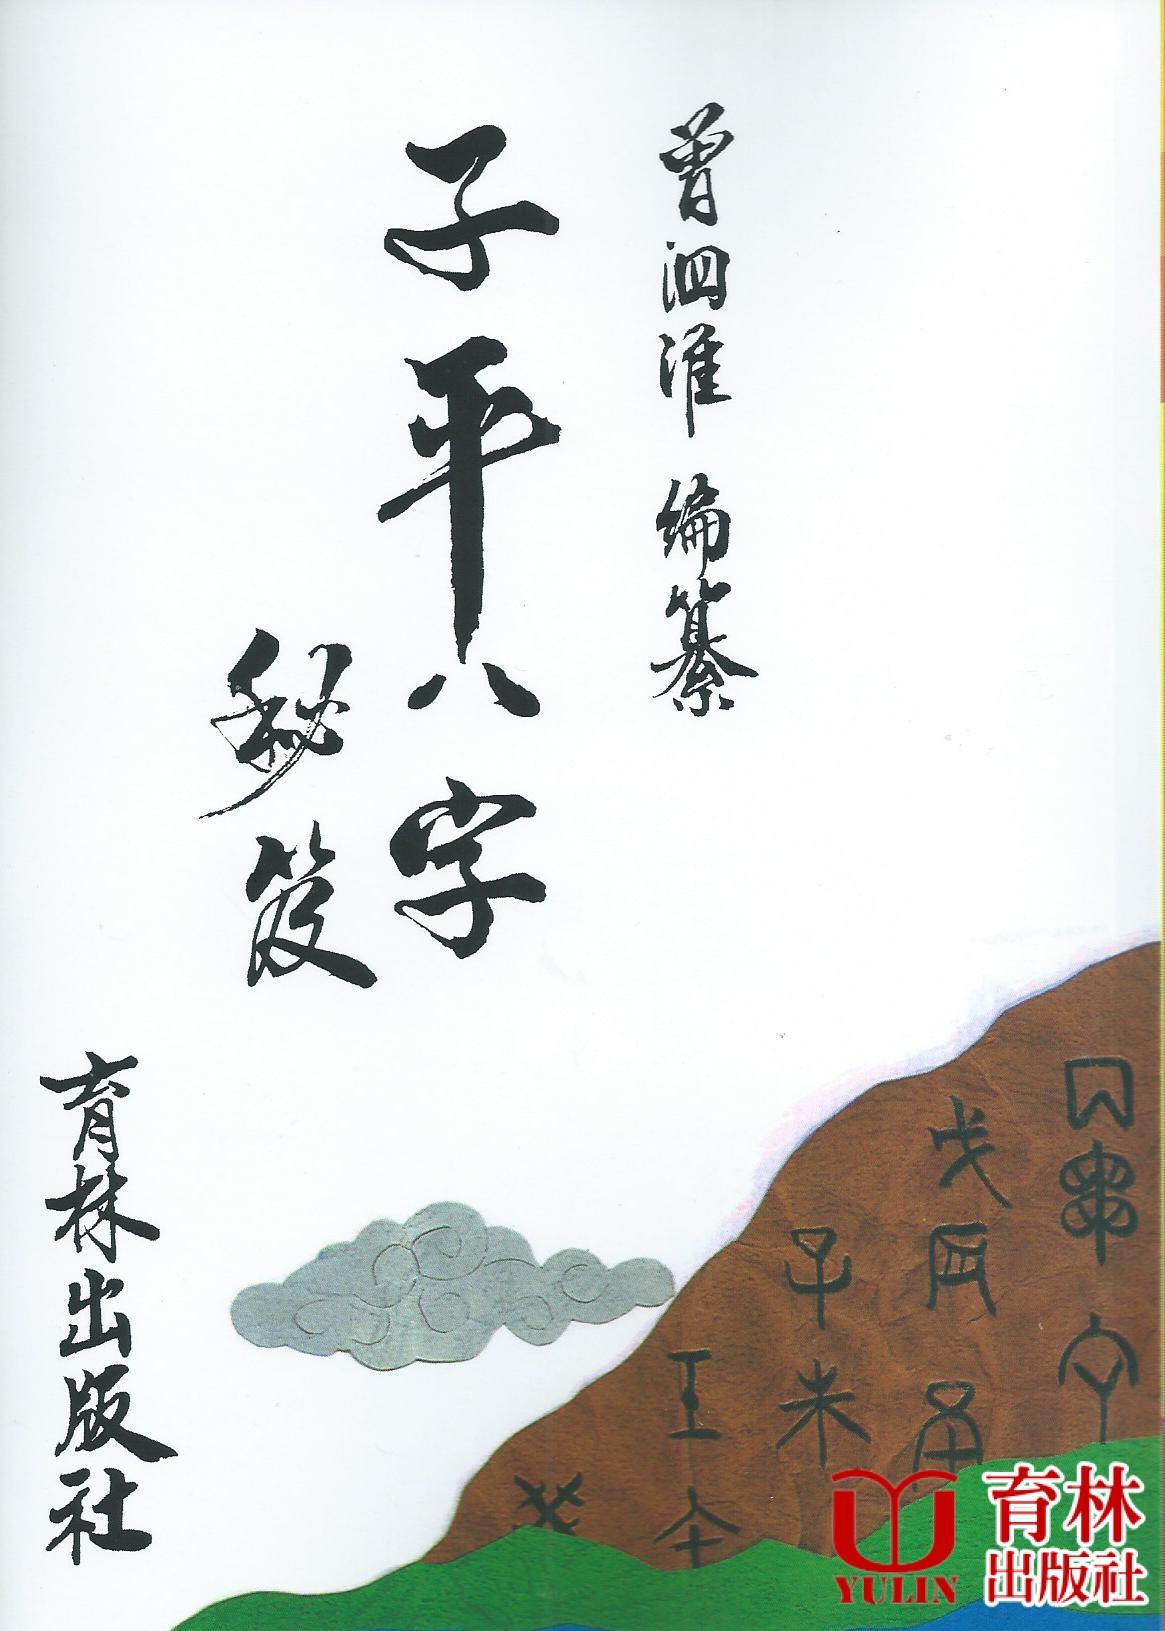 曾泗淮 編纂
子平八字
秘笈
育林出版社
育林
出版社
YULIN